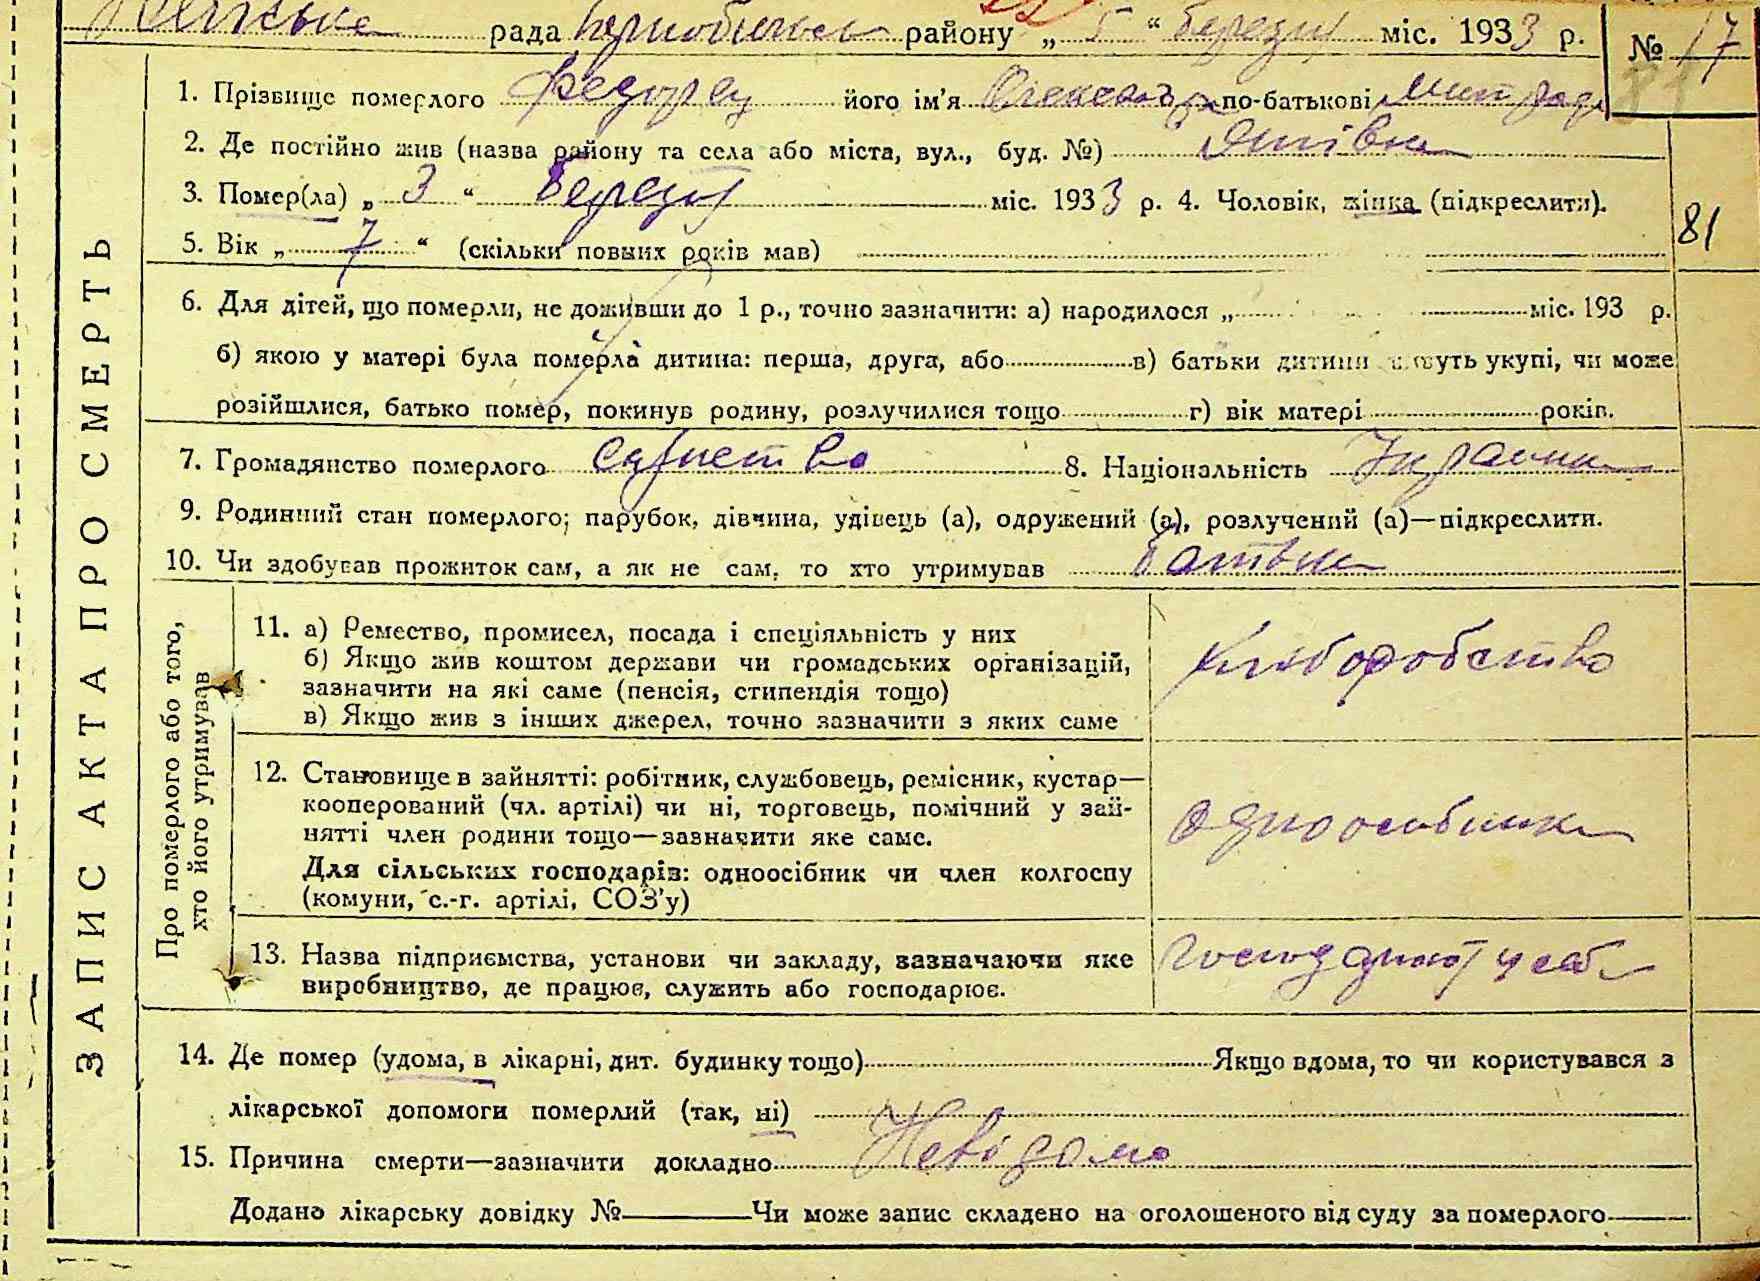 рада району „ 5 “ березня міс. 1933 р. № 17
1. Прізвище померлого Федорец його ім'я по-батькові
2. Де постійно жив (назва району та села або міста, вул., буд. №)
3. Помер(ла) „ 3 “ березня міс. 1933 р. 4. Чоловік, жінка (підкреслити).
81
5. Вік „ 7 “ (скільки повних років мав)
6. Для дітей, що померли, не доживши до 1 р., точно зазначити: а) народилося „ міс. 193 р.
б) якою у матері була померла дитина: перша, друга, або в) батьки дитини живуть укупі, чи може
розійшлися, батько помер, покинув родину, розлучилися тощо г) вік матері років.
7. Громадянство померлого 8. Національність
9. Родинний стан померлого; парубок, дівчина, удівець (а), одружений (а), розлучений (а)—підкреслити.
10. Чи здобував прожиток сам, а як не сам, то хто утримував батьки
ЗАПИС АКТА ПРО СМЕРТЬ
Про померлого або того,
хто його утримував
11. а) Ремество, промисел, посада і спеціяльність у них
б) Якщо жив коштом держави чи громадських організацій,
зазначити на які саме (пенсія, стипендія тощо)
в) Якщо жив з інших джерел, точно зазначити з яких саме
хліборобство
12. Становище в зайнятті: робітник, службовець, ремісник, кустар—
кооперований (чл. артілі) чи ні, торговець, помічний у зай-
нятті член родини тощо—зазначити яке саме.
Для сільських господарів: одноосібник чи член колгоспу
(комуни, с.-г. артілі, СОЗ'у)
одноосібник
13. Назва підприємства, установи чи закладу, зазначаючи яке
виробництво, де працює, служить або господарює.
14. Де помер (удома, в лікарні, дит. будинку тощо) Якщо вдома, то чи користувався з
лікарської допомоги померлий (так, ні)
15. Причина смерти—зазначити докладно Невідомо
Додано лікарську довідку № Чи може запис складено на оголошеного від суду за померлого